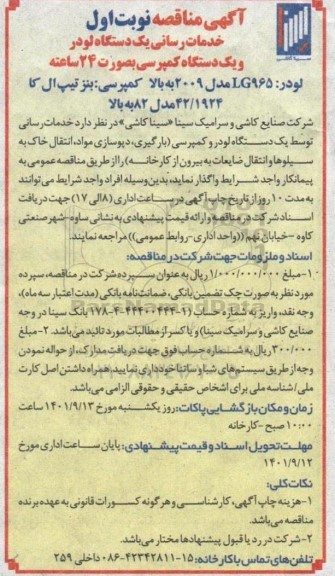 آگهی مناقصه نوبت اول
خدمات رسانی یک دستگاه لودر
و یک دستگاه کمپرسی بصورت ۲۴ ساعته
لودر: LG۹۶۵ مدل ۲۰۰۹ به بالا کمپرسی: بنز تیپ ال کا
۴۲/۱۹۲۴ مدل ۸۲ به بالا
شرکت صنایع کاشی و سرامیک سینا «سینا کاشی» در نظر دارد خدمات رسانی
توسط یک دستگاه لودر و کمپرسی (بارگیری، دپوسازی مواد، انتقال خاک به
سیلوها و انتقال ضایعات به بیرون از کارخانه) را از طریق مناقصه عمومی به
پیمانکار واجد شرایط واگذار نماید، بدین وسیله افراد واجد شرایط می توانند
به مدت ۱۰ روز از تاریخ چاپ آگهی در ساعت اداری (۸ الی ۱۷) جهت دریافت
اسناد شرکت در مناقصه و ارائه قیمت پیشنهادی به نشانی ساوه-شهر صنعتی
کاوه-خیابان نهم «(واحد اداری-روابط عمومی)» مراجعه نمایند.
اسناد و ملزومات جهت شرکت در مناقصه:
۱-مبلغ ۱/۰۰۰/۰۰۰/۰۰۰ ریال به عنوان سپرده شرکت در مناقصه، سپرده
مورد نظر به صورت چک تضمین بانکی، ضمانت نامه بانکی (مدت اعتبار سه ماه)،
وجه نقد، واریز به شماره حساب (۱-۴۴۴۰۰۴۴۴-۴-۱۷۸ بانک سینا در وجه
صنایع کاشی و سرامیک سینا) و یا کسر از مطالبات مورد تائید می باشد. ۲-مبلغ
۳۰۰/۰۰۰ ریال به شماره حساب فوق جهت دریافت مدارک، از حواله نمودن
وجه از طریق سیستم های شبا و ساتنا خودداری نمایید. همراه داشتن اصل کارت
ملی/شناسه ملی برای اشخاص حقیقی و حقوقی الزامی می باشد.
زمان و مکان بازگشایی پاکات: روز یکشنبه مورخ ۱۴۰۱/۹/۱۳ ساعت
۱۰:۰۰ صبح-کارخانه
مهلت تحویل اسناد و قیمت پیشنهادی: پایان ساعت اداری مورخ
۱۴۰۱/۹/۱۲
نکات کلی:
۱-هزینه چاپ آگهی، کارشناسی و هرگونه کسورات قانونی به عهده برنده
مناقصه می باشد.
۲-شرکت در رد یا قبول پیشنهادها مختار می باشد.
تلفن های تماس با کارخانه: ۱۵-۴۲۳۴۲۸۱۱-۰۸۶ داخلی ۲۵۹